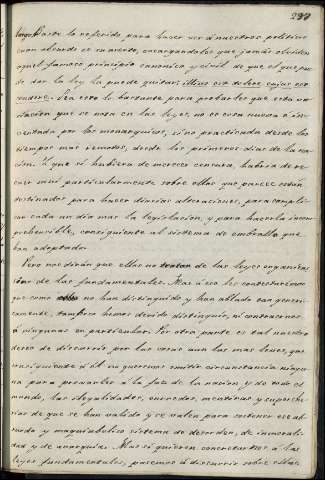 297
largo. Baste lo referido para hacer ver á nuestros politicos
cuan absurdo es su aserto, encargandoles que jamás olviden
aquel famoso principio canonico y civil de que el que pue-
de dar la ley la puede quitar: illius est tollere cujus est
condere. Sea esto lo bastante para probarles que esta va-
riacion que se nota en las leyes, no es cosa nueva ó in-
ventada por los monarquicos, sino practicada desde los
tiempos mas remotos, desde los primeros dias de la na-
cion. Y que si hubiera de merecer censura, habria de re-
caer muy particularmente sobre ellos que parece estan
destinados para hacer diarias alteraciones, para compli-
car cada un dia mas la legislacion, y para hacerla incom-
prehensible, consiguiente al sistema de embrollo que
han adoptado.
Pero nos dirán que ellos no tratan de las leyes organicas
sino de las fundamentales. Mas á eso les contestaremos
que como no han distinguido y han ablado tan generi-
camente, tampoco hemos devido distinguir, ni contraernos
á ningunas en particular. Por otra parte es tal nuestro
deseo de discurrir por las varias aun las mas leves, que
consiguiente á él no queremos omitir circunstancia ningu-
na para provarles á la faz de la nacion y de todo el
mundo, las ilegalidades, enredos, mentiras y superche-
rias de que se han valido y se valen para sostener ese ab-
surdo y maquiabelico sistema de desorden, de inmorali-
dad y de anarquia. Mas si quieren concretarnos á las
leyes fundamentales, pasemos á discurrir sobre ellas.